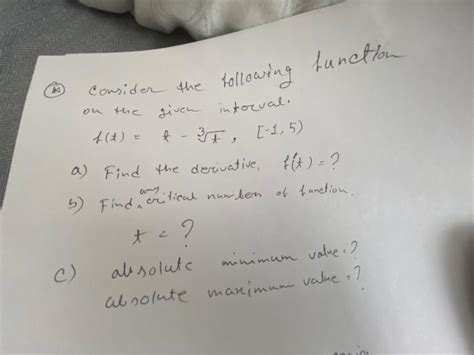 Consider the following function
on the given interval.
f(t) = t - ∛t , [-1, 5)
a) Find the derivative, f'(t) = ?
b) Find any critical numbers of function.
t = ?
c) absolute minimum value = ?
absolute maximum value = ?